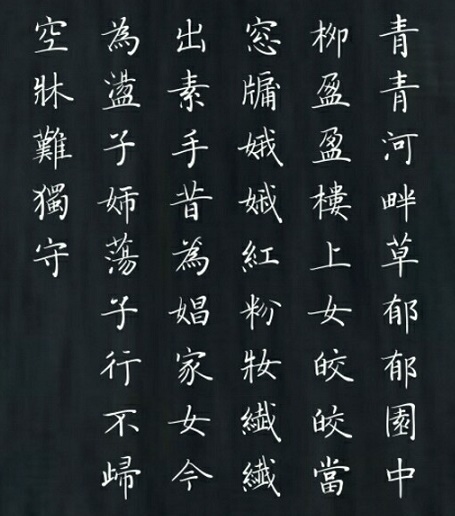 青青河畔草郁郁園中
柳盈盈樓上女皎皎當
窓牖娥娥紅粉妝纎纎
出素手昔為娼家女今
為盪子婦蕩子行不歸
空牀難獨守